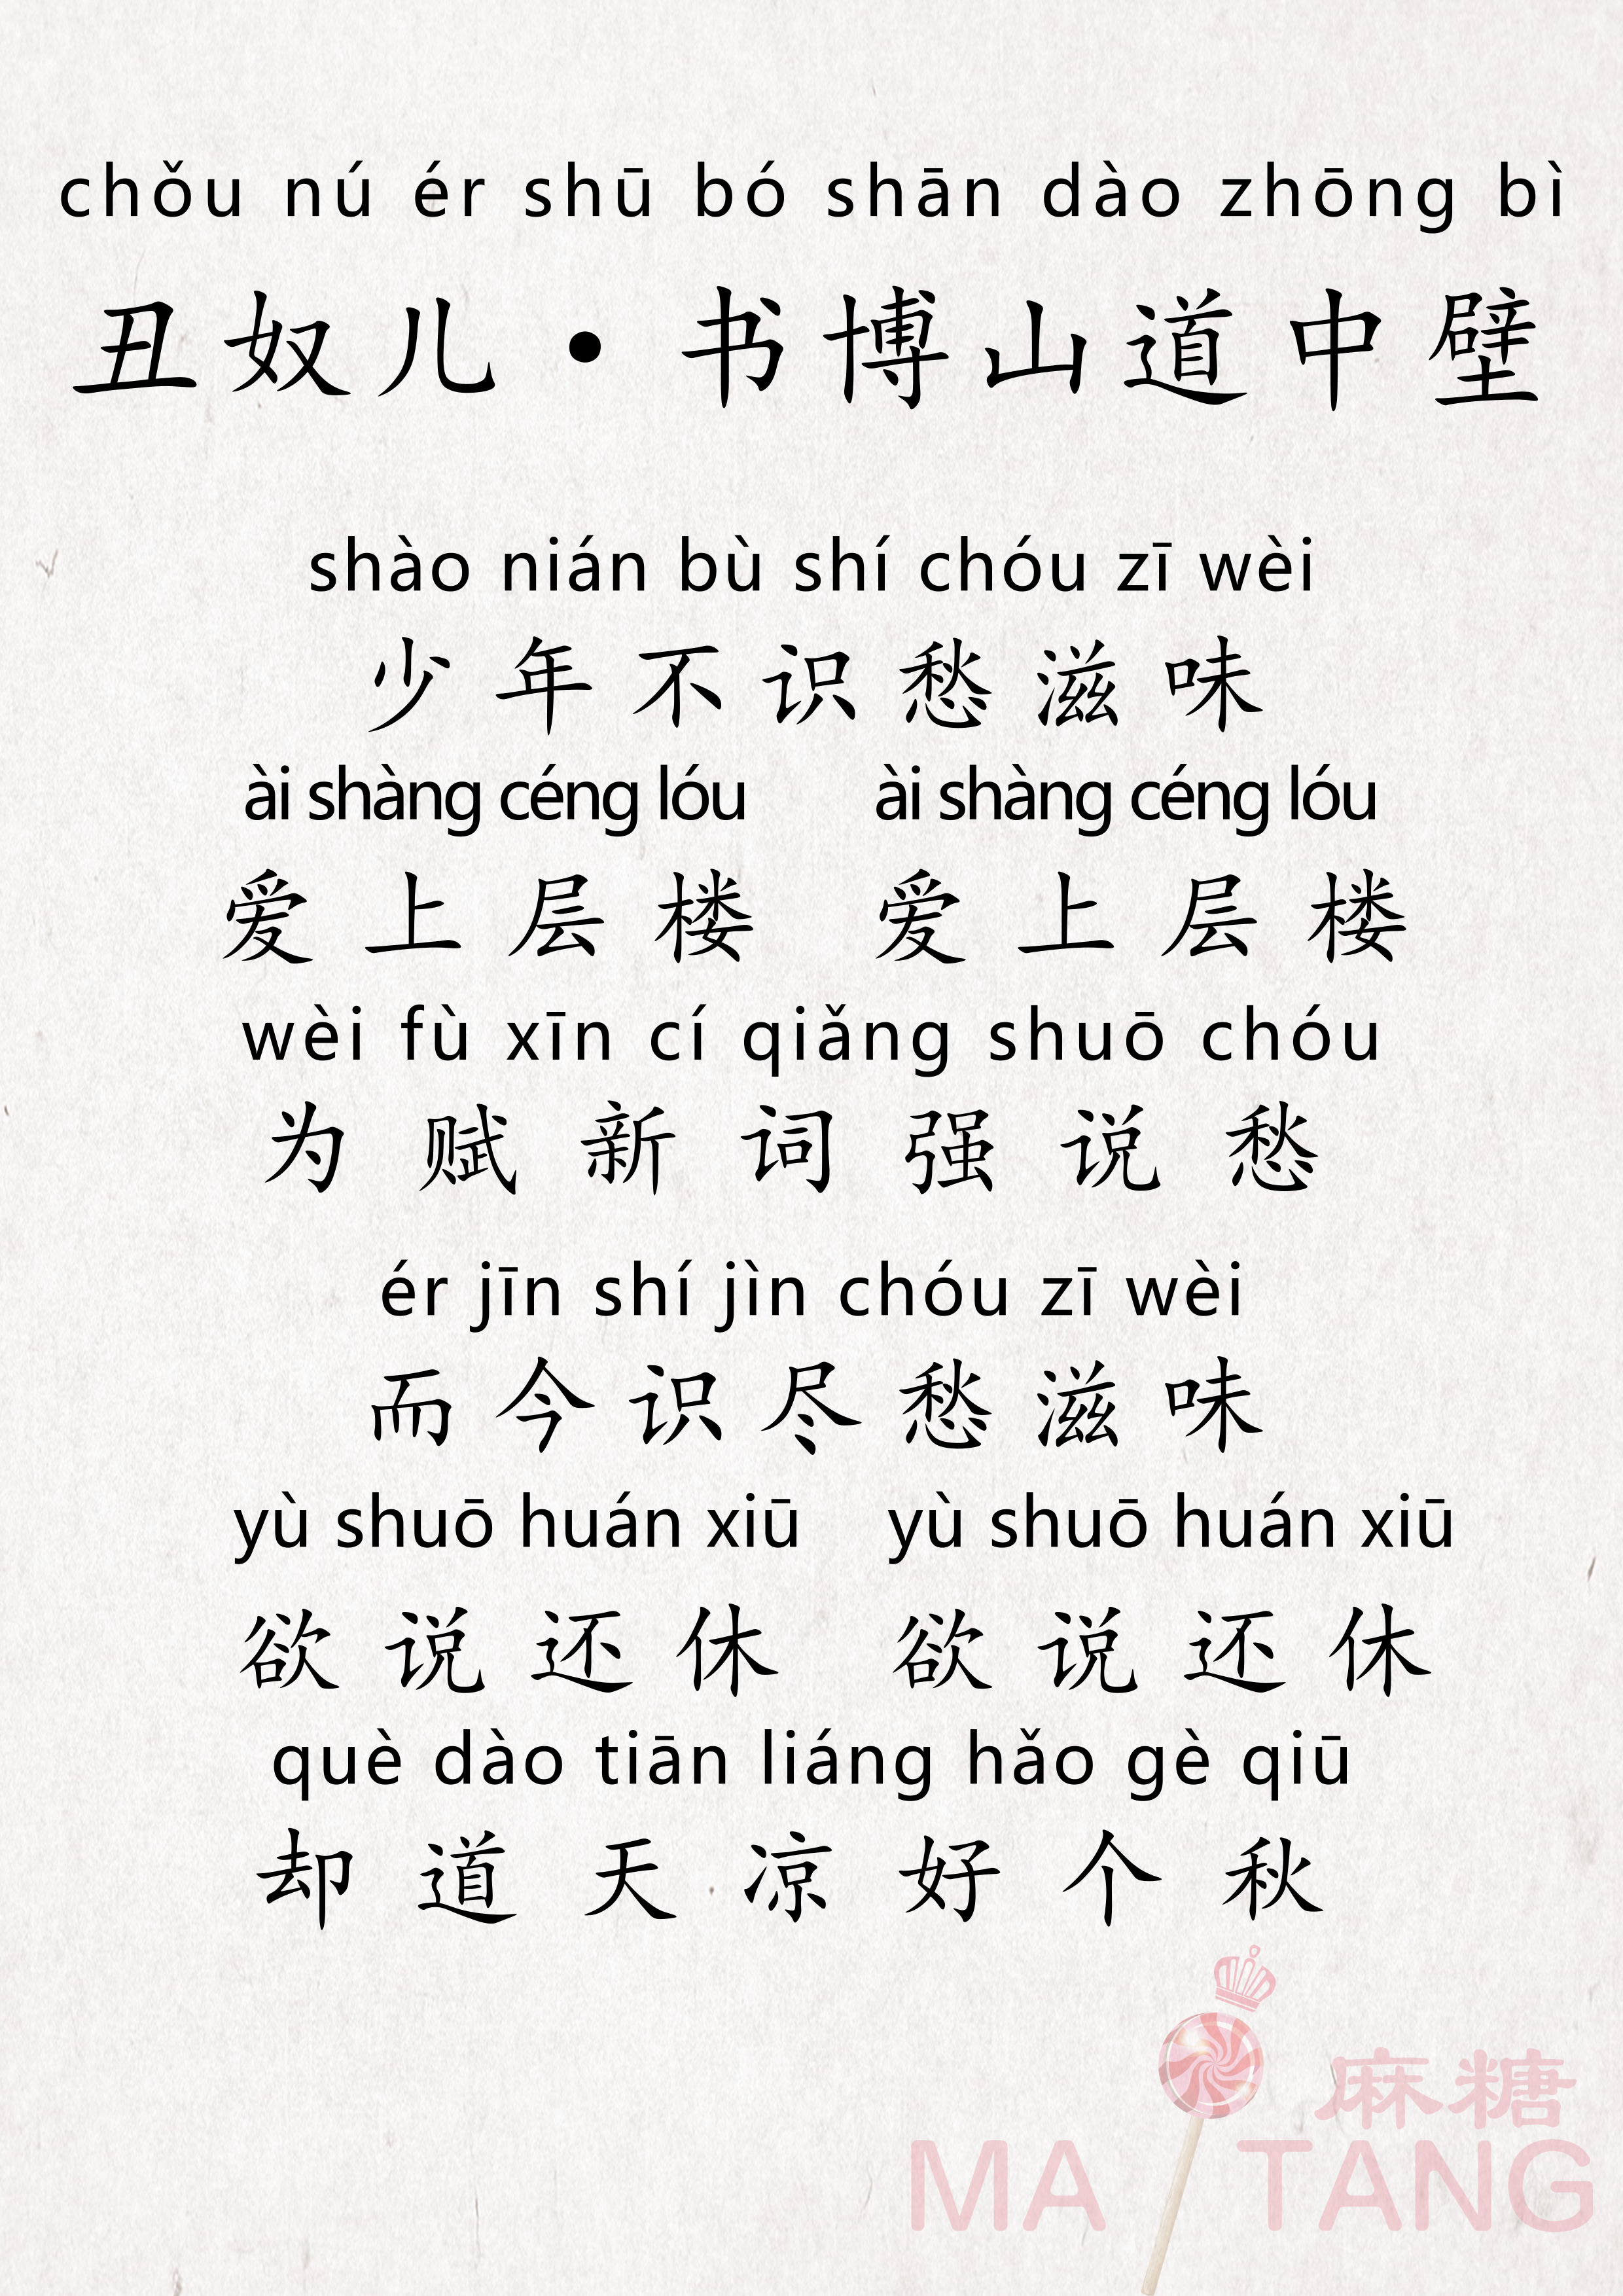 chǒu nú ér shū bó shān dào zhōng bì
丑奴儿·书博山道中壁
shào nián bù shí chóu zī wèi
少年不识愁滋味
ài shàng céng lóu ài shàng céng lóu
爱上层楼 爱上层楼
wèi fù xīn cí qiǎng shuō chóu
为赋新词强说愁
ér jīn shí jìn chóu zī wèi
而今识尽愁滋味
yù shuō huán xiū yù shuō huán xiū
欲说还休 欲说还休
què dào tiān liáng hǎo gè qiū
却道天凉好个秋
麻糖
MA TANG